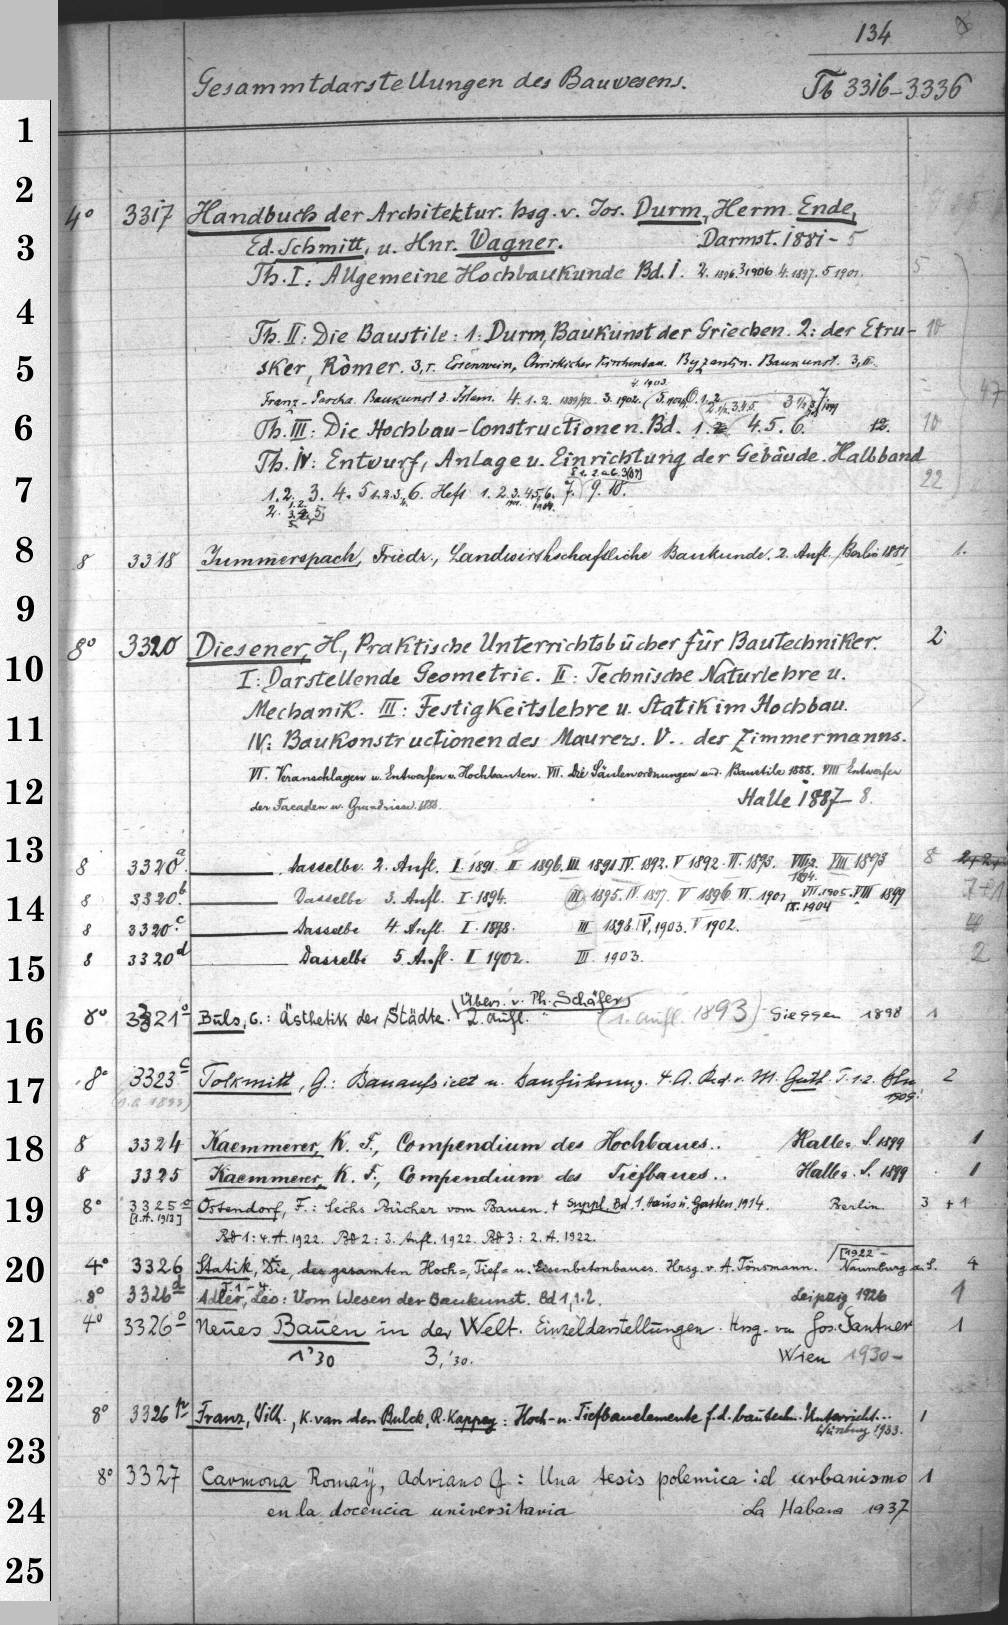 134
Gesammtdarstellungen des Bauwesens. Tb 3316-3336
1
2
4° 3317 Handbuch der Architektur. hsg. v. Jos. Durm, Herm. Ende,
3 Ed. Schmitt, u. Hnr. Wagner. Darmst. 1881-5
Th. I: Allgemeine Hochbaukunde Bd. 1. 2. 1896. 3 1906. 4. 1897. 5 1901. 5
4 Th. II: Die Baustile: 1: Durm, Baukunst der Griechen. 2: der Etru- 10
5 sker, Römer. 3,1. Essenwein, Christlicher Kirchenbau. Byzantin. Baukunst. 3,II.
Franz-Pascha. Baukunst d. Islam. 4. 1. 2. 3. 1902. 47
6 Th. III: Die Hochbau-Constructionen. Bd. 1. 2 4. 5. 6. 12. 10
Th. IV: Entwurf, Anlage u. Einrichtung der Gebäude. Halbband 22
7 1. 2. 3. 4. 5 1. 2. 3. 4. 6. Heft 1. 2. 3. 4. 5. 6. 7. 9. 10.
8 8 3318 Jummerspach, Friedr., Landwirthschaftliche Baukunde. 2. Aufl. Berlin 1881 1.
9
8° 3320 Diesener, H., Praktische Unterrichtsbücher für Bautechniker. 2
10 I: Darstellende Geometrie. II: Technische Naturlehre u.
Mechanik. III: Festigkeitslehre u. Statik im Hochbau.
11 IV: Baukonstructionen des Maurers. V.. des Zimmermanns.
VI. Veranschlagen u. Entwerfen v. Hochbauten. VII. Die Säulenordnungen und Baustile 1888. VIII Entwerfen
12 der Facaden u. Grundrisse. 1888. Halle 1887-8.
13 8 3320a Dasselbe. 2. Aufl. I. 1891. II 1896. III 1891 IV. 1892. V 1892. VI. 1893. VII,2 1894. VIII 1893 8
14 8 3320b Dasselbe 3. Aufl. I. 1894. III 1895. IV. 1897. V 1896 VI. 1901 VII. 1905. VIII 1899 7+1
IX. 1904
8 3320c Dasselbe 4. Aufl. I. 1898. III 1898. IV, 1903. V 1902.
15 8 3320d Dasselbe 5. Aufl. I 1902. III. 1903. 2
Übers. v. Ph. Schäfer
16 8° 3321° Buls, C.: Ästhetik der Städte. 2. Aufl. (1. Aufl. 1893) Giessen 1898 1
17 8° 3323c Tolkmitt, G.: Bauaufsicht u. Bauführung. 4. A. Red. v. M. Guth. T. 1. 2. Bln 1909. 2
(1. A. 1899)
18 8 3324 Kaemmerer, K. F., Compendium des Hochbaues.. Halle a. S. 1899 1
8 3325 Kaemmerer, K. F., Compendium des Tiefbaues.. Halle a. S. 1899 1
19 8° 3325a Ostendorf, F.: Sechs Bücher vom Bauen. + Suppl. Bd. 1. Haus u. Garten. 1914. Berlin 3 + 1
[1. A. 1913]
Bd 1: 4. A. 1922. Bd 2: 3. Aufl. 1922. Bd 3: 2. A. 1922.
20 4° 3326 Statik, Die, der gesamten Hoch-, Tief- u. Eisenbetonbaues. Hrsg. v. A. Tönsmann. [1922- Naumburg a. S. 4
T. 1-4.
8° 3326d Adler, Leo: Vom Wesen der Baukunst. Bd 1,1.2. Leipzig 1926 1
21 4° 3326° Neues Bauen in der Welt. Einzeldarstellungen. Hrsg. von Jos. Gantner 1
1'30 3,'30. Wien 1930-
22
8° 3326p Franz, Wilh., K. van den Bulck, R. Kappey: Hoch- u. Tiefbauelemente f. d. bautech. Unterricht... 1
Würzburg 1933.
23
8° 3327 Carmona Romaÿ, Adriano G: Una tesis polemica: el urbanismo 1
24 en la docencia universitaria La Habana 1937
25